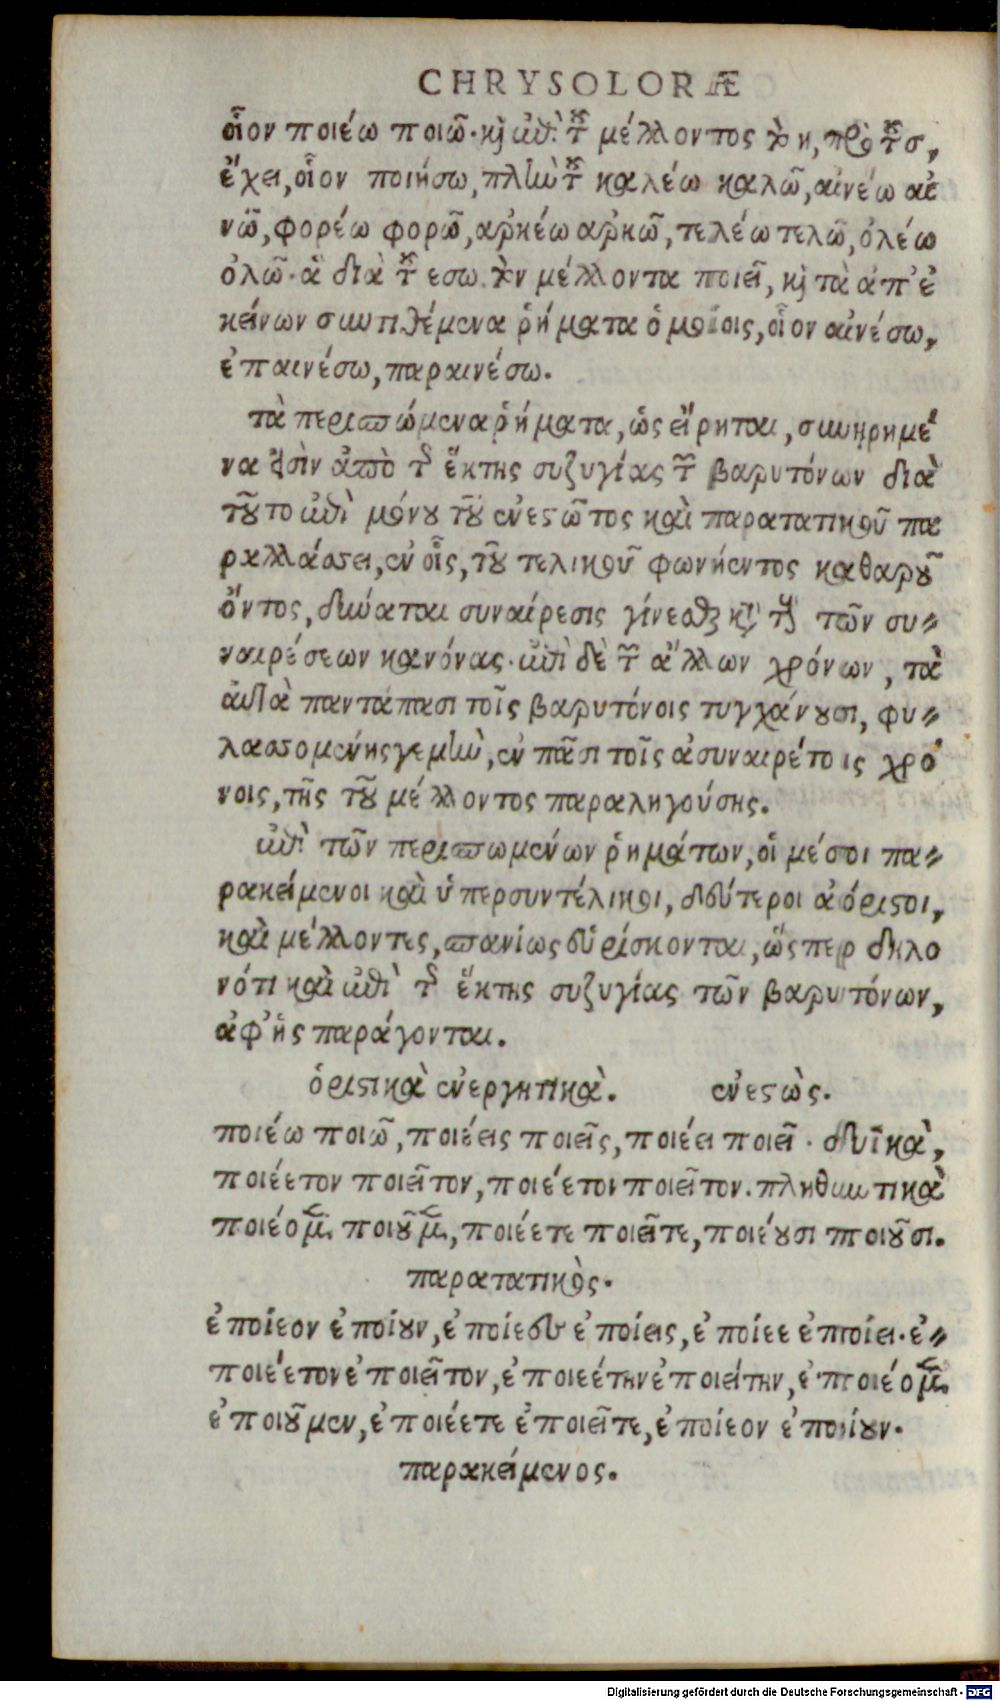 CHRYSOLORÆ
οἷον ποιέω ποιῶ. καὶ ἐπὶ τοῦ μέλλοντος τὸ η, πρὸ τοῦ σ,
ἔχει, οἷον ποιήσω, πλὴν τοῦ καλέω καλῶ, αἰνέω αἰ
νῶ, φορέω φορῶ, ἀρκέω ἀρκῶ, τελέω τελῶ, ὀλέω
ὀλῶ. ἃ διὰ τοῦ εσω τὸν μέλλοντα ποιεῖ, καὶ τὰ ἀπ' ἐ
κείνων συντιθέμενα ῥήματα ὁμοίοις, οἷον αἰνέσω,
ἐπαινέσω, παραινέσω.
τὰ περισπώμενα ῥήματα, ὡς εἴρηται, συνῃρημέ
να εἰσὶν ἀπὸ τῆς ἕκτης συζυγίας τῶν βαρυτόνων διὰ
τοῦτο ἐπὶ μόνου τοῦ ἐνεστῶτος καὶ παρατατικοῦ πα
ραλλάσσει, ἐν οἷς, τοῦ τελικοῦ φωνήεντος καθαροῦ
ὄντος, δύναται συναίρεσις γίνεσθαι κατὰ τοὺς τῶν συ-
ναιρέσεων κανόνας. ἐπὶ δὲ τῶν ἄλλων χρόνων, τὰ
αὐτὰ παντάπασι τοῖς βαρυτόνοις τυγχάνουσι, φυ-
λασσομένης γε μὴν, ἐν πᾶσι τοῖς ἀσυναιρέτοις χρό
νοις, τῆς τοῦ μέλλοντος παραληγούσης.
ἐπὶ τῶν περισπωμένων ῥημάτων, οἱ μέσοι πα-
ρακείμενοι καὶ ὑπερσυντέλικοι, δεύτεροι ἀόριστοι,
καὶ μέλλοντες, σπανίως εὑρίσκονται, ὥσπερ δηλο
νότι καὶ ἐπὶ τῆς ἕκτης συζυγίας τῶν βαρυτόνων,
ἀφ' ἧς παράγονται.
ὁριστικὰ ἐνεργητικὰ. ἐνεστὼς.
ποιέω ποιῶ, ποιέεις ποιεῖς, ποιέει ποιεῖ. δυϊκὰ,
ποιέετον ποιεῖτον, ποιέετον ποιεῖτον. πληθυντικὰ
ποιέομεν ποιοῦμεν, ποιέετε ποιεῖτε, ποιέουσι ποιοῦσι.
παρατατικὸς.
ἐποίεον ἐποίουν, ἐποίεες ἐποίεις, ἐποίεε ἐποίει. ἐ-
ποιέετον ἐποιεῖτον, ἐποιεέτην ἐποιείτην, ἐποιέομεν
ἐποιοῦμεν, ἐποιέετε ἐποιεῖτε, ἐποίεον ἐποίουν.
παρακείμενος.
Digitalisierung gefördert durch die Deutsche Forschungsgemeinschaft - DFG